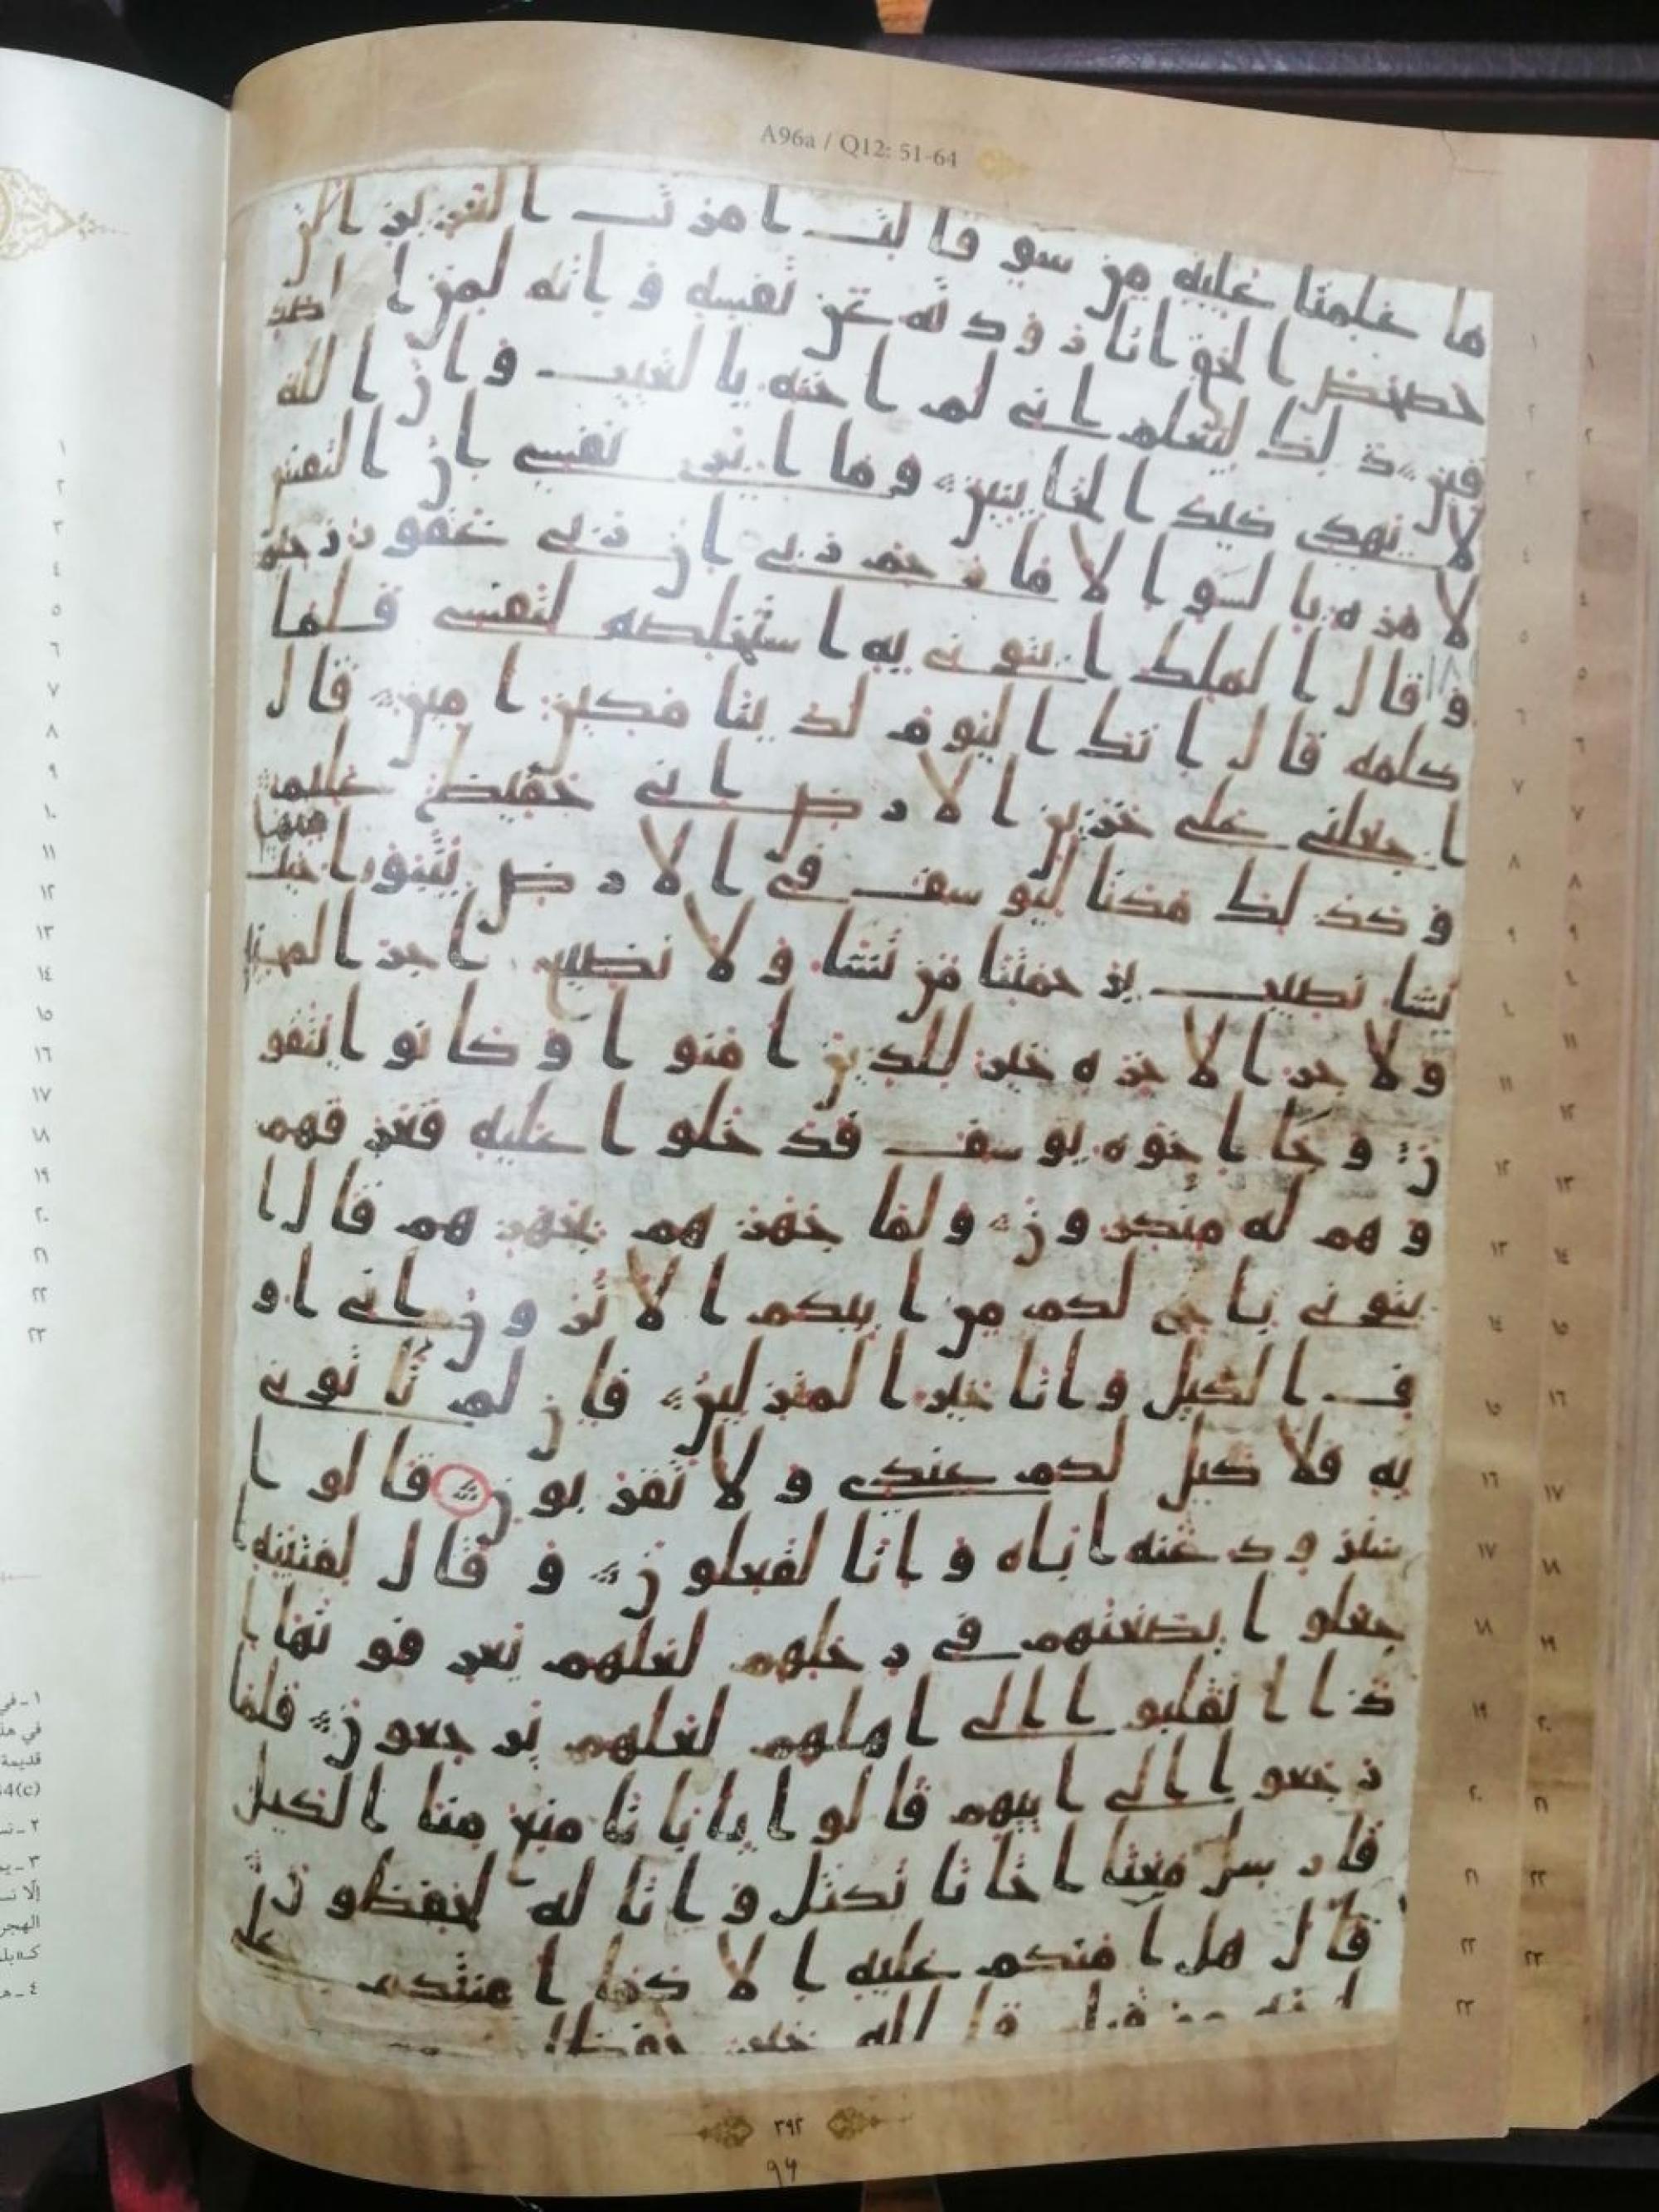 A96a / Q12: 51-64
ما علمنا عليه من سو قالت امرت العزيز الن
حصحص الحق انا رودته عن نفسه وانه لمن ا لصد
قين ذلك ليعلم اني لم اخنه بالغيب وان الله
لا يهدي كيد الخاينين وما ابري نفسي ان النفس
لا مره بالسو الا ما رحم ربي ان ربي غفور رحيم
وقال الملك ايتوني به استخلصه لنفسي فلما
كلمه قال انك اليوم لدينا مكين امين قال
اجعلني على خزين الارض اني حفيظ عليم
وكذلك مكنا ليوسف في الارض يتبوا منها حيث
يشا نصيب برحمتنا من نشا ولا نضيع اجر المحسنين
ولاجر الاخره خير للذين امنوا وكانوا يتقو
ن وجا اخوه يوسف فدخلوا عليه فعرفهم
وهم له منكرون ولما جهزهم بجهزهم قال ا
يتوني باخ لكم من ابيكم الا ترون اني او
ف الكيل وانا خير المنزلين فان لم تاتوني
به فلا كيل لكم عندي ولا تقربون قالوا
سنرود عنه اباه وانا لفعلون وقال لفتينه ا
جعلوا بضعتهم في رحلهم لعلهم يعرفونها ا
ذا انقلبوا الى اهلهم لعلهم يرجعون فلما
رجعوا الى ابيهم قالوا يابانا منع منا الكيل
فارسل معنا اخانا نكتل وانا له لحفظون
قال هل امنكم عليه الا كما امنتكم على
اخيه من قبل فالله خير حفظا
٣٩٢
96